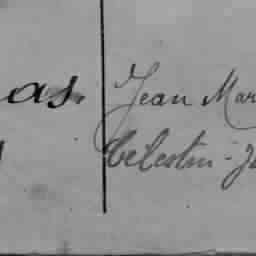 as. Jean Mar
Celestin-J